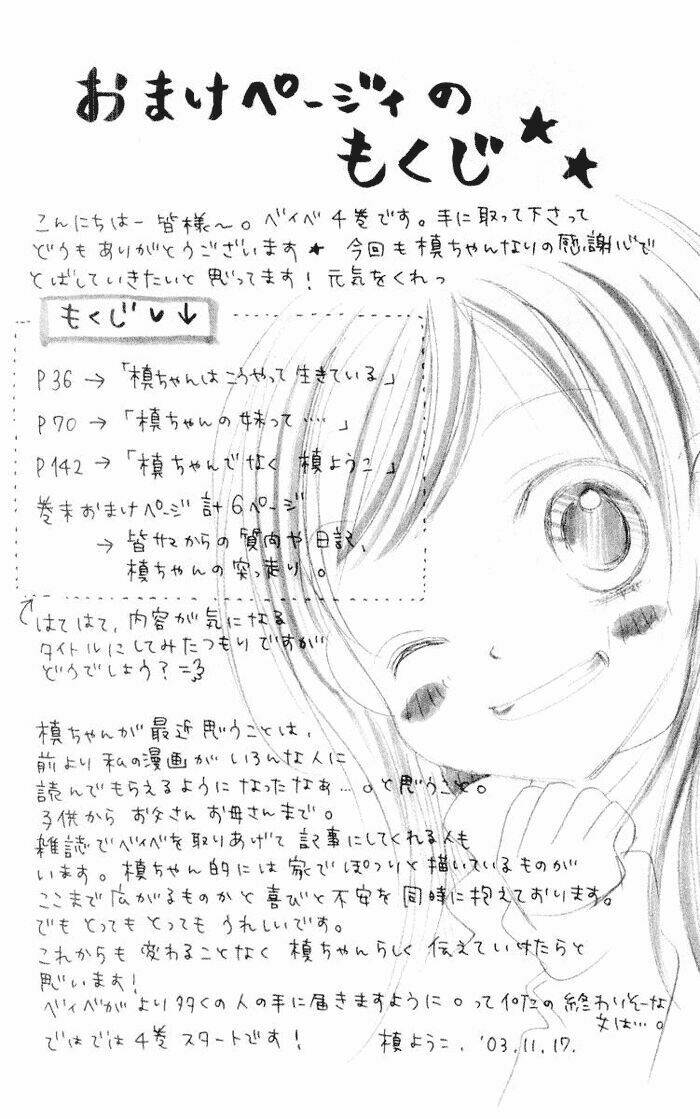 おまけページィの
もくじ★★
こんにちはー皆様〜。ベイベ4巻です。手に取って下さって
どうもありがとうございます★ 今回も槙ちゃんなりの感謝心で
とばしていきたいと思ってます！元気をくれっ
もくじ♥↓
P36→「槙ちゃんはこうやって生きている」
P70→「槙ちゃんの妹って……」
P142→「槙ちゃんでなく 槙ようこ」
巻末おまけページ 計6ページ
→ 皆サマからの質問や日記、
槙ちゃんの突っ走り。
はてはて、内容が気になる
タイトルにしてみたつもりですが
どうでしょう？
槙ちゃんが最近思うことは、
前より私の漫画がいろんな人に
読んでもらえるようになったなぁ…。と思うこと。
子供からお父さんお母さんまで。
雑誌でベイベを取りあげて記事にしてくれる人も
います。槙ちゃん的には家でぽつりと描いているものが
ここまで広がるものかと喜びと不安を同時に抱えております。
でもとってもとってもうれしいです。
これからも変わることなく槙ちゃんらしく伝えていけたらと
思います！
ベイベがより多くの人の手に届きますように。って の終わりそーな
文は…。
ではでは4巻スタートです！ 槙ようこ. '03.11.17.